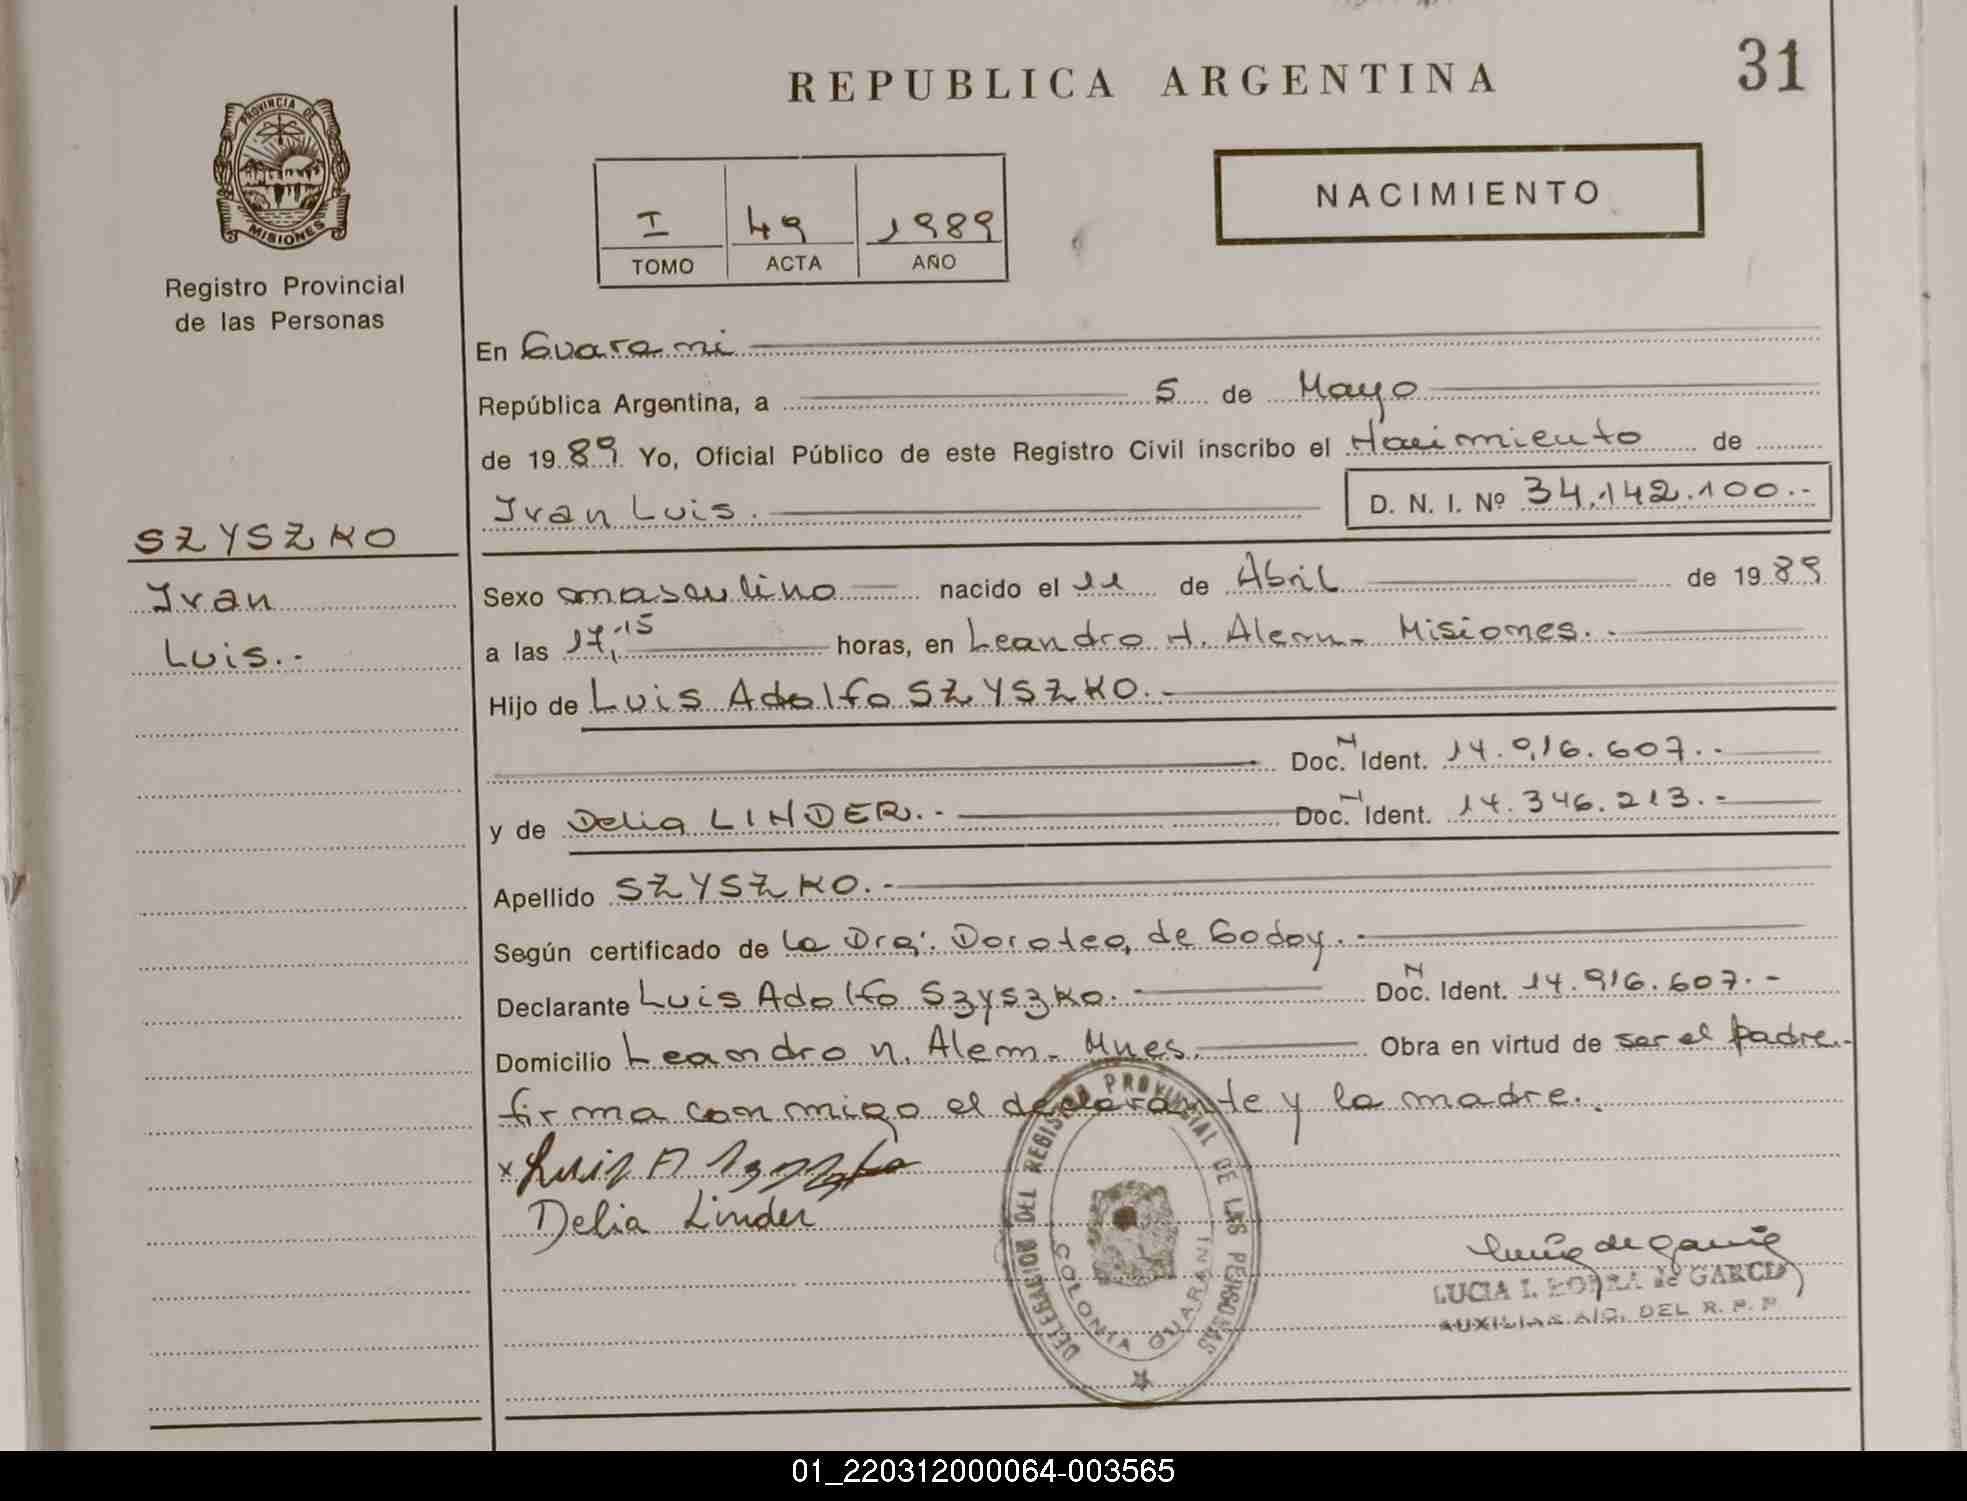 31
REPUBLICA ARGENTINA
NACIMIENTO
PROVINCIA DE
MISIONES
Registro Provincial
de las Personas
I 49 1989
TOMO ACTA AÑO
En Guarani
República Argentina, a 5 de Mayo
de 1989 Yo, Oficial Público de este Registro Civil inscribo el Nacimiento de
Ivan Luis. D. N. I. Nº 34.142.100.-
SZYSZKO
Ivan
Luis.-
Sexo masculino nacido el 11 de Abril de 1989
a las 17,15 horas, en Leandro N. Alem - Misiones.-
Hijo de Luis Adolfo SZYSZKO.-
Doc. N Ident. 14.916.607.-
y de Delia LINDER.- Doc. N Ident. 14.346.213.-
Apellido SZYSZKO.-
Según certificado de la Dra. Dorotea de Godoy.-
Declarante Luis Adolfo Szyszko.- Doc. N Ident. 14.916.607.-
Domicilio Leandro N. Alem - Mnes. Obra en virtud de ser el padre.-
firma conmigo el declarante y la madre.
x Luis A Szyszko
Delia Linder
DELEGACION DEL REGISTRO PROVINCIAL DE LAS PERSONAS
COLONIA GUARANI
Lucia de Garcia
LUCIA I. de GARCIA
AUXILIAR A/C. DEL R. P. P.
01_220312000064-003565